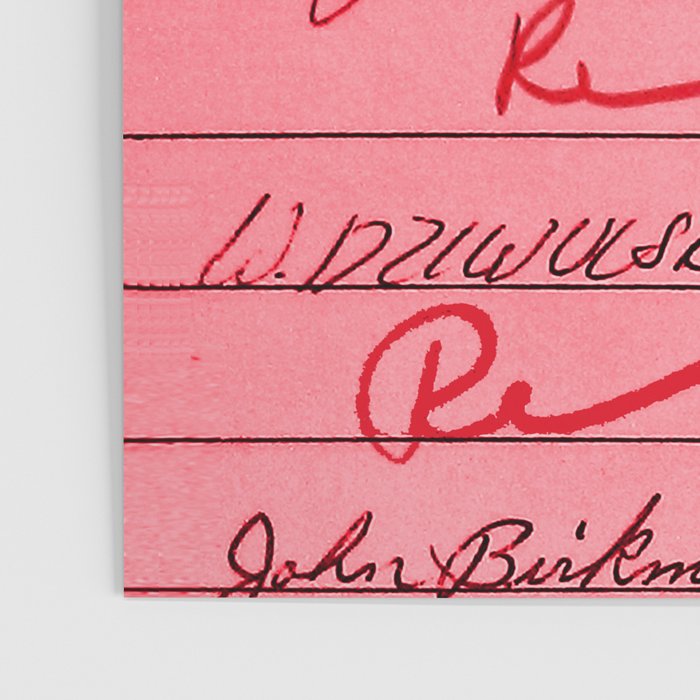 Re
W. DZIWULSK
Re
John Birkm